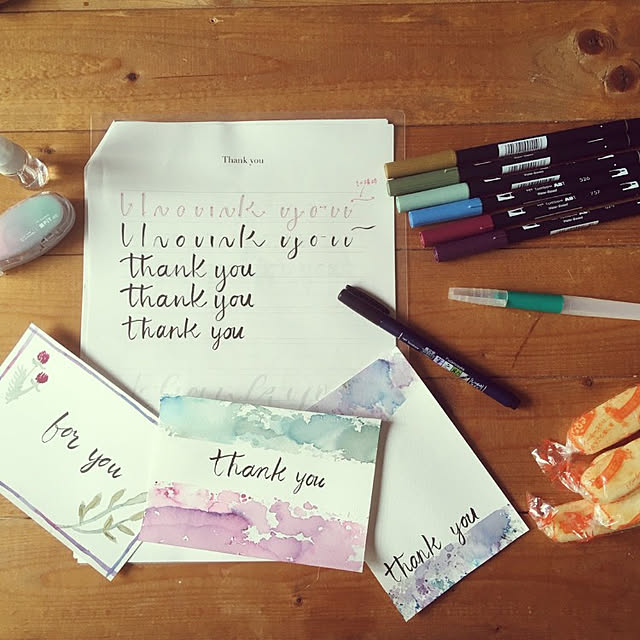 Thank you
thank you
thank you
thank you
thank you
thank you
for you
thank you
thank you
526
757